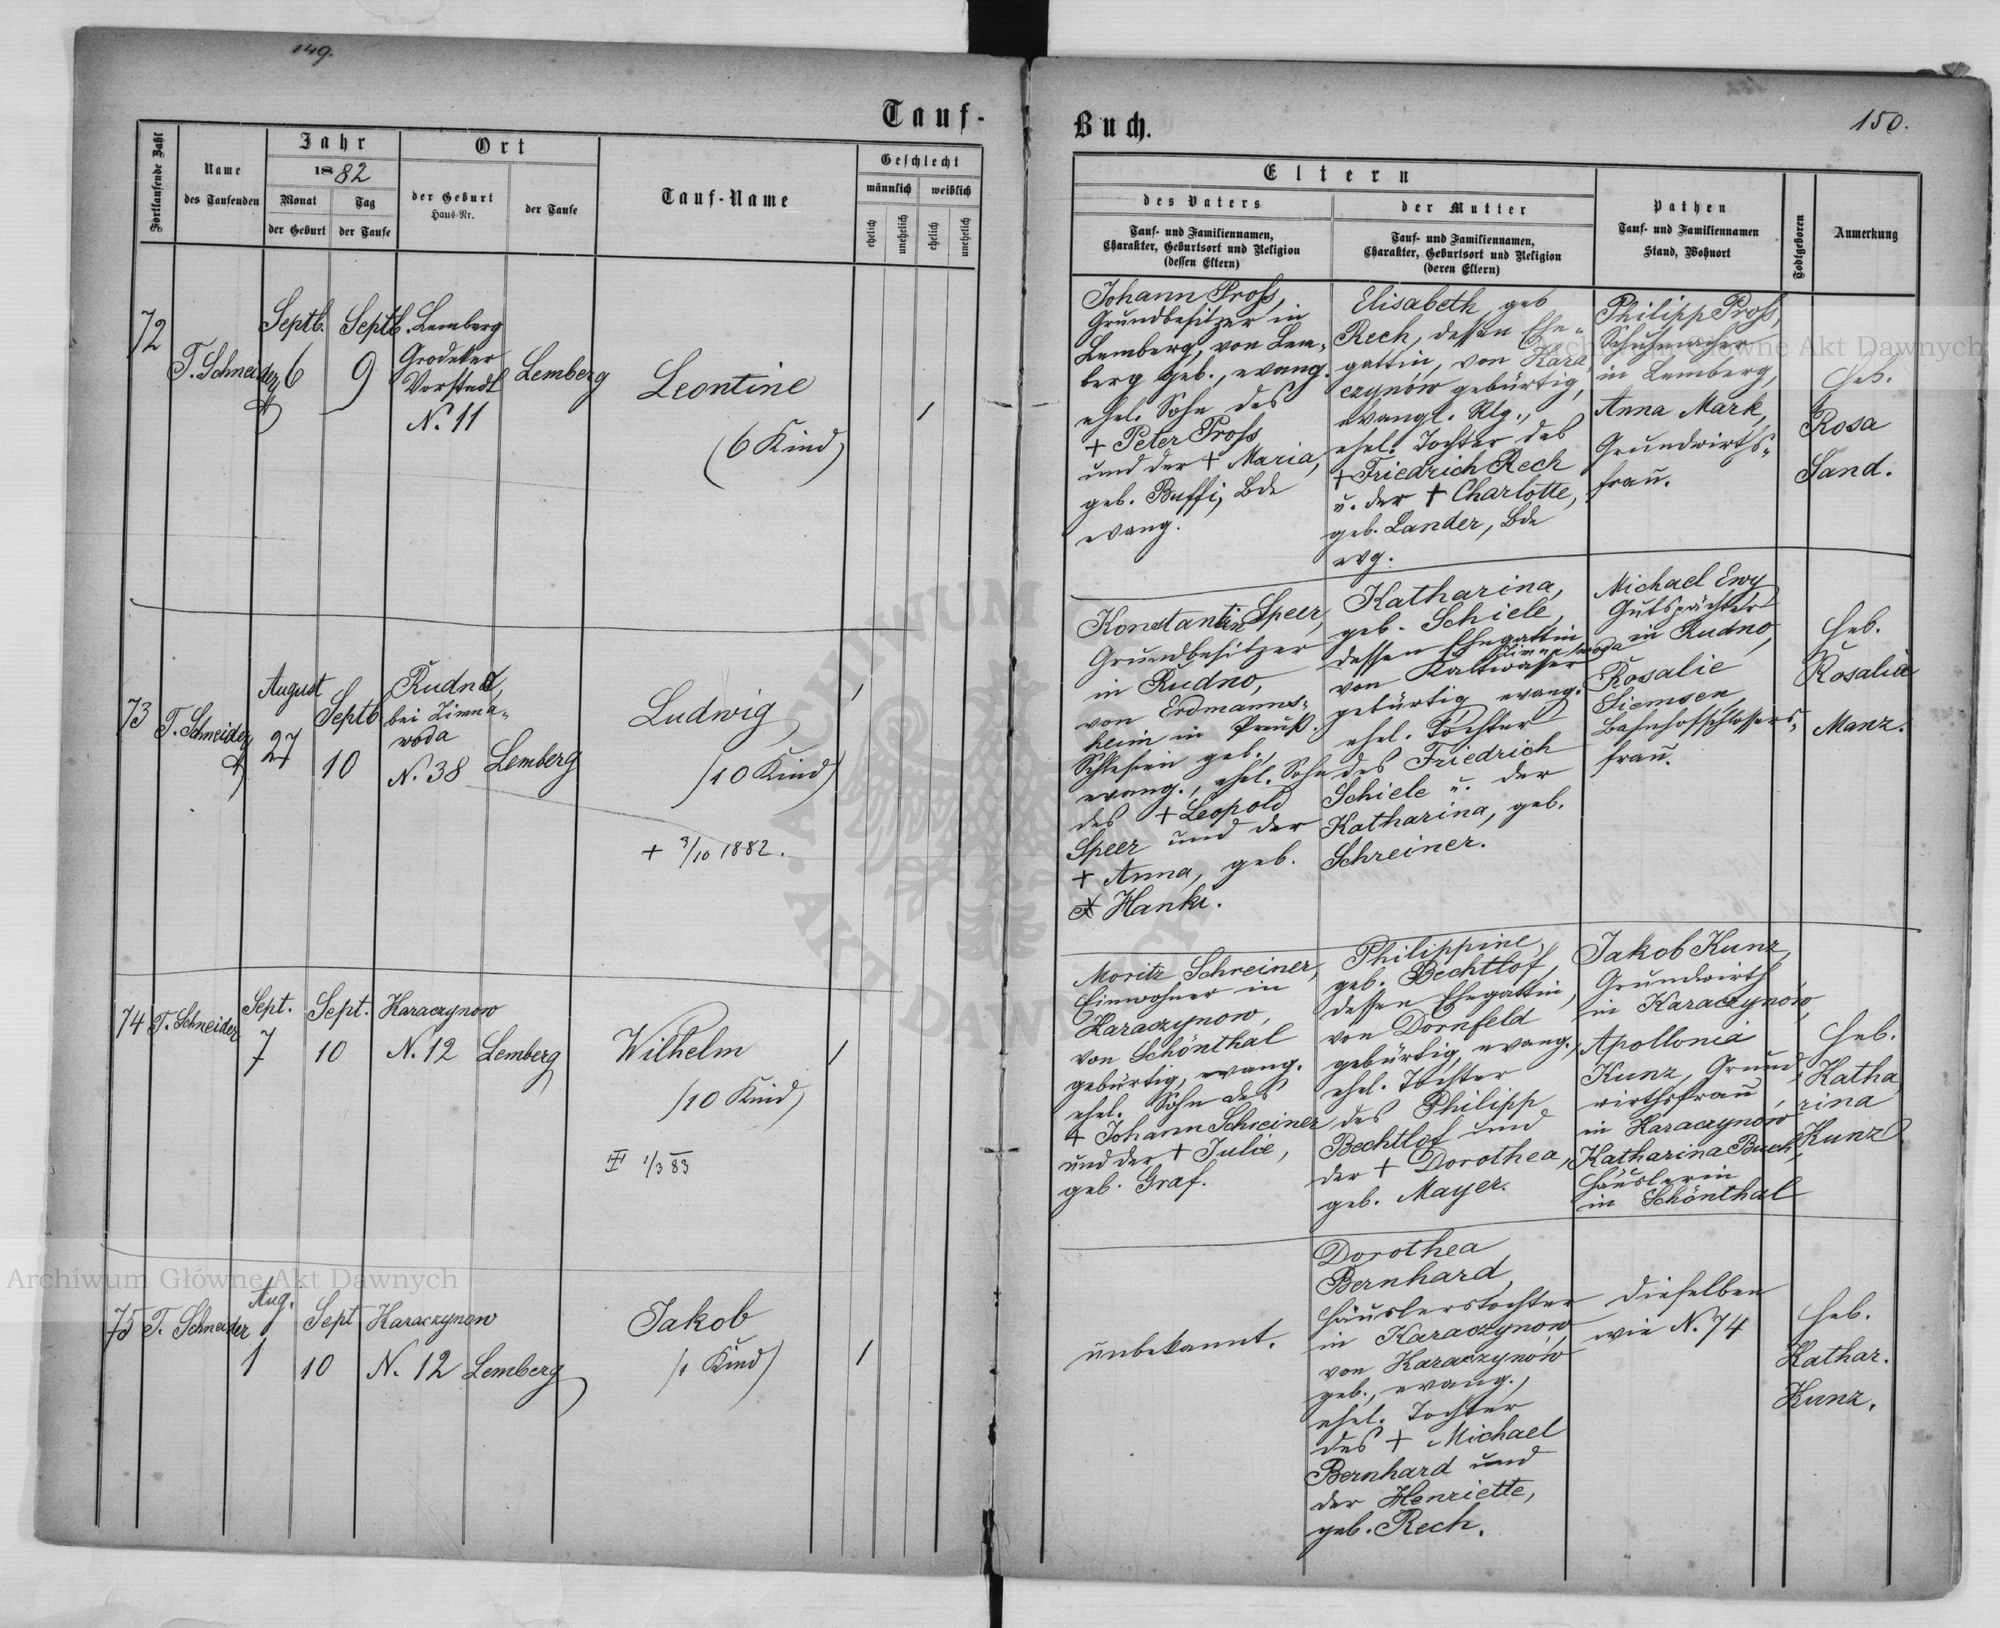 149.
Tauf-
Fortlaufende Zahl
Name
des Taufenden
Jahr
1882
Monat
Tag
der Geburt
der Taufe
Ort
der Geburt
Haus-Nr.
der Taufe
Tauf-Name
Geschlecht
männlich
weiblich
ehelich
unehelich
ehelich
unehelich
72
T. Schneider
Septb.
6
Septb.
9
Lemberg
Grodeker
Vorstadt
N. 11
Lemberg
Leontine
(6 Kind)
1
73
T. Schneider
August
27
Septb
10
Rudno,
bei Zimna-
woda
N. 38
Lemberg
Ludwig
(10 Kind)
1
+ 3/10 1882.
74
T. Schneider
Sept.
7
Sept.
10
Karaczynow
N. 12
Lemberg
Wilhelm
(10 Kind)
1
1/3 83
75
T. Schneider
Aug.
1
Sept
10
Karaczynow
N. 12
Lemberg
Jakob
(1 Kind)
1
Buch.
150.
Eltern
des Vaters
Tauf- und Familiennamen,
Charakter, Geburtsort und Religion
(dessen Eltern)
der Mutter
Tauf- und Familiennamen,
Charakter, Geburtsort und Religion
(deren Eltern)
Pathen
Tauf- und Familiennamen
Stand, Wohnort
Todtgeboren
Anmerkung
Johann Pross,
Grundbesitzer in
Lemberg, von Lem-
berg geb., evang.
ehel. Sohn des
+ Peter Pross
und der + Maria,
geb. Buffi, bde
evang.
Elisabeth geb
Rech, dessen Ehe-
gattin, von Kara
czynów gebürtig,
evangl. Rlg.,
ehel. Tochter des
+ Friedrich Rech
u. der + Charlotte,
geb. Lander, bde
evg.
Philipp Pross,
Schuhmacher
in Lemberg,
Anna Mark,
Grundwirths-
frau.
Heb.
Rosa
Sand.
Konstantin Speer,
Grundbesitzer
in Rudno,
von Erdmanns-
heim in Preuß.
Schlesien geb.,
evang., ehel. Sohn
des + Leopold
Speer und der
+ Anna, geb.
Hanke.
Katharina,
geb. Schiele,
dessen Ehegattin
von Kaltwasser
gebürtig evang.
ehel. Tochter
des Friedrich
Schiele u. der
Katharina, geb.
Schreiner.
Michael Ewy
Gutspächter
in Rudno,
Rosalie
Siemsen,
Bahnhofschlossers-
frau.
Heb.
Rosalia
Manz.
Moritz Schreiner,
Einwohner in
Karaczynow,
von Schönthal
gebürtig, evang.
ehel. Sohn des
+ Johann Schreiner
und der + Julie,
geb. Graf.
Philippine,
geb. Bechtlof,
dessen Ehegattin,
von Dornfeld
gebürtig, evang.,
ehel. Tochter
des Philipp
Bechtlof und
der + Dorothea,
geb. Mayer.
Jakob Kunz,
Grundwirth
in Karaczynów,
Apollonia
Kunz, Grund
wirthsfrau
in Karaczynów
Katharina Buch,
Häuslerin
in Schönthal
Heb.
Katha
rina
Kunz
unbekannt.
Dorothea
Bernhard,
Häuslerstochter
in Karaczynow,
von Karaczynów
geb., evang.,
ehel. Tochter
des + Michael
Bernhard und
der Henriette,
geb. Rech.
dieselben
wie N. 74
Heb.
Kathar.
Kunz.
Archiwum Główne Akt Dawnych
Archiwum Główne Akt Dawnych